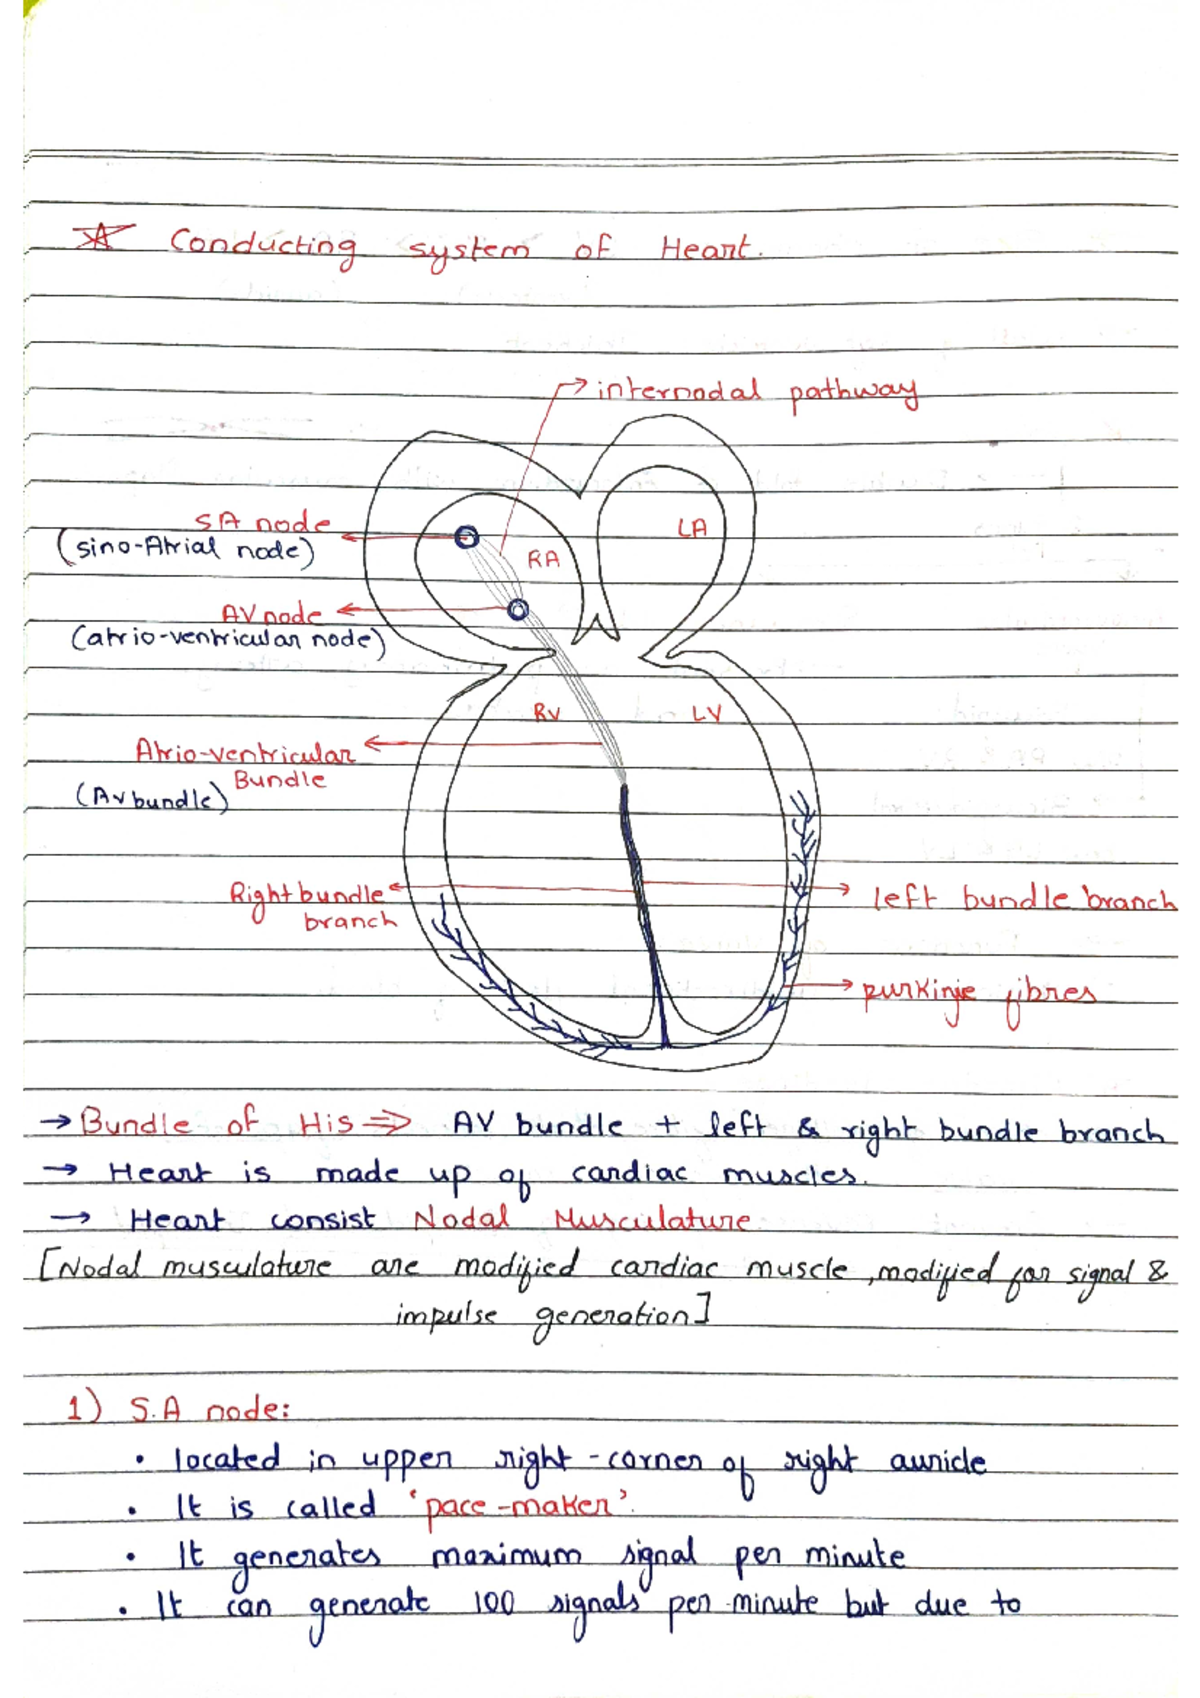 Conducting system of Heart.
internodal pathway
SA node
(sino-Atrial node)
LA
RA
AV node
(atrio-ventricular node)
RV
LV
Atrio-ventricular
Bundle
(Av bundle)
Right bundle
branch
left bundle branch
purkinje fibres
→ Bundle of His ⇒ AV bundle + left & right bundle branch
→ Heart is made up of cardiac muscles.
→ Heart consist Nodal Musculature
[Nodal musculature are modified cardiac muscle, modified for signal &
impulse generation]
1) S.A node:
• located in upper right-corner of right auricle
• It is called 'pace-maker'.
• It generates maximum signal per minute
• It can generate 100 signals per minute but due to